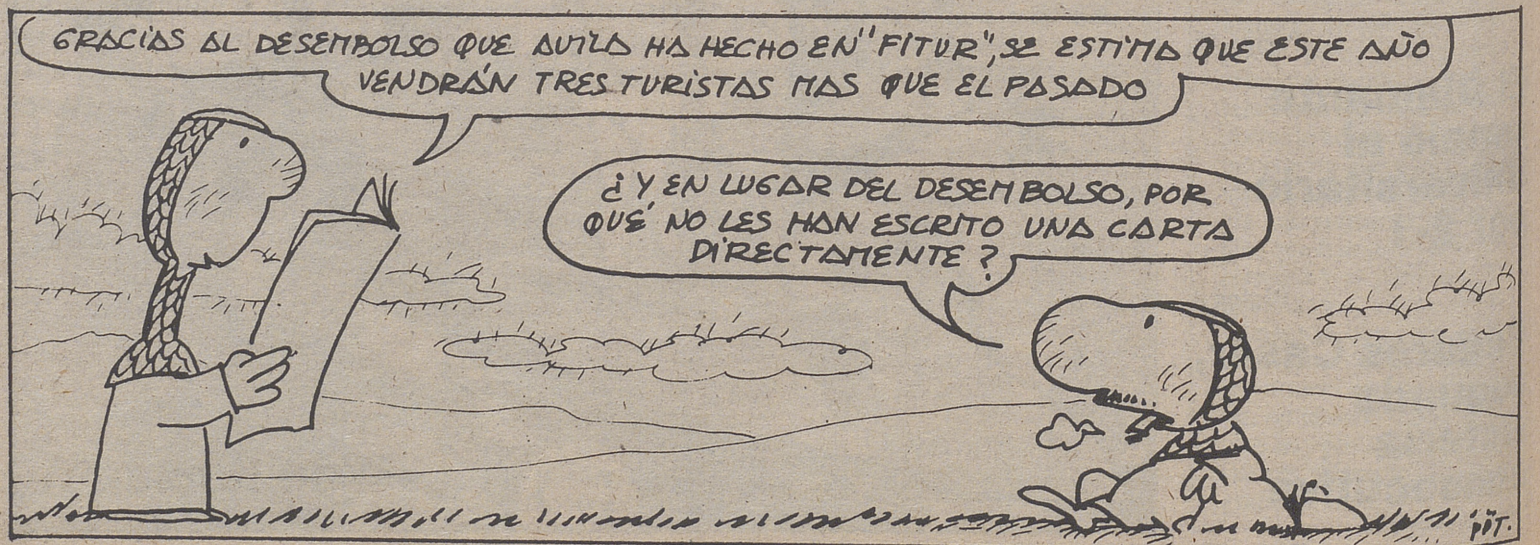 GRACIAS AL DESEMBOLSO QUE AVILA HA HECHO EN "FITUR", SE ESTIMA QUE ESTE AÑO
VENDRÁN TRES TURISTAS MAS QUE EL PASADO
¿Y EN LUGAR DEL DESEMBOLSO, POR
QUÉ NO LES HAN ESCRITO UNA CARTA
DIRECTAMENTE?